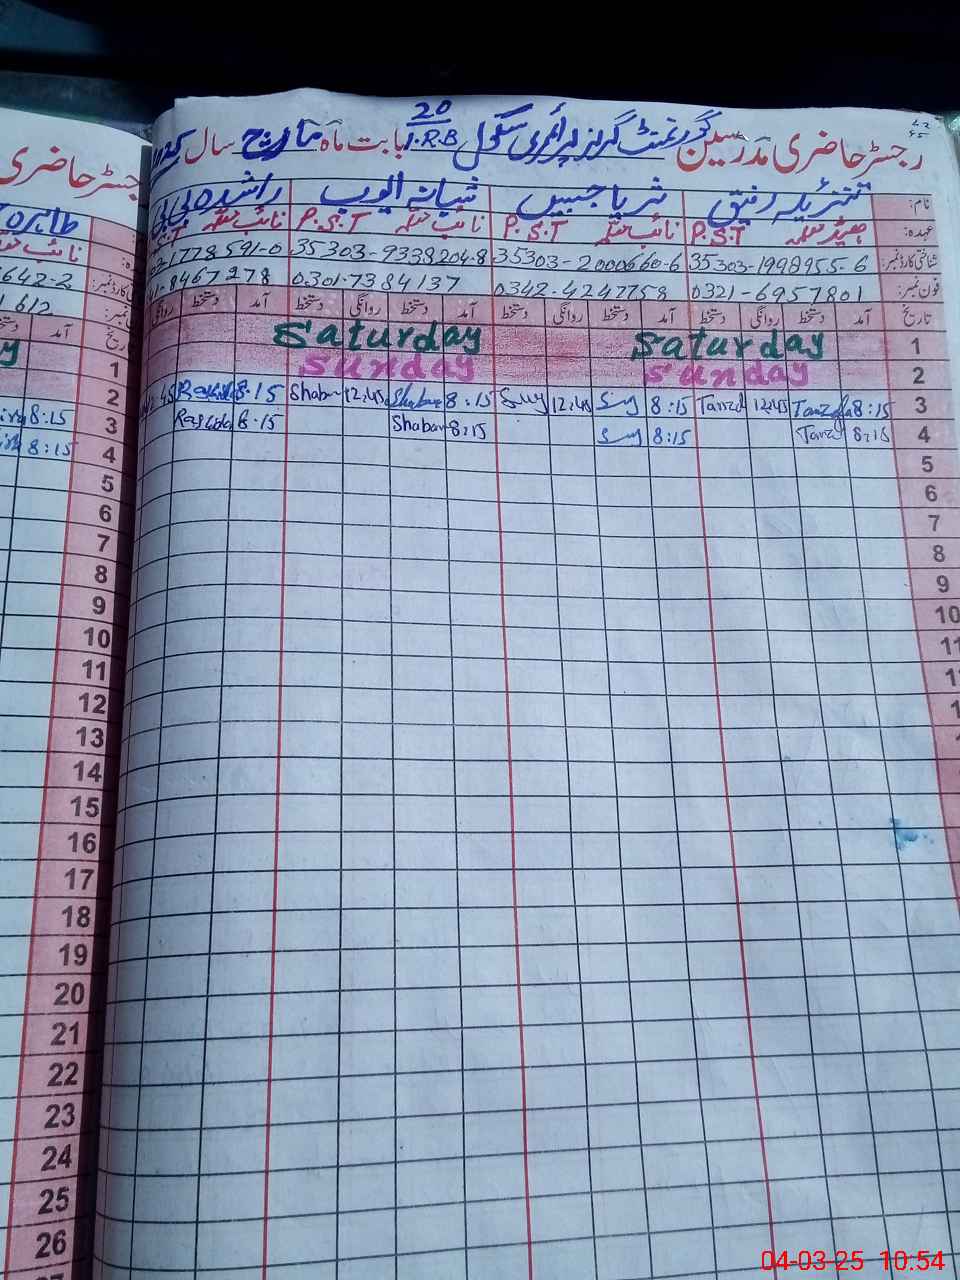 رجسٹر حاضری مدرسین گورنمنٹ گرلز پرائمری سکول 20 J.R.B بابت ماہ مارچ سال
نام: تنزیلہ رفیق ثریا جبیں شبانہ ایوب راشدہ بی بی
عہدہ: ہیڈ معلمہ P.S.T نائب معلمہ P.S.T نائب معلمہ P.S.T نائب معلمہ
شناختی کارڈ نمبر: 35303-1998955-6 35303-2000660-6 35303-9338204-8 1778591-0
فون نمبر: 0321-6957801 0342-4247758 0301-7384137 8467278
تاریخ آمد دستخط روانگی دستخط آمد دستخط روانگی دستخط آمد دستخط روانگی دستخط آمد دستخط روانگی
1 Saturday Saturday
2 Sunday Sunday
3 8:15 Tanzela 12:45 Tanzel 8:15 12:45 8:15 Shabana 12:45 Shaban 8:15 Rashida
4 8:15 Tanzel 8:15 8:15 Shaban 8:15 Rashida
5
6
7
8
9
10
11
جسٹر حاضری
طاہرہ
نائب
642-2
612
آمد تاریخ
1
2
8:15 3
8:15 4
5
6
7
8
9
10
11
12
13
14
15
16
17
18
19
20
21
22
23
24
25
26
04-03-25 10:54